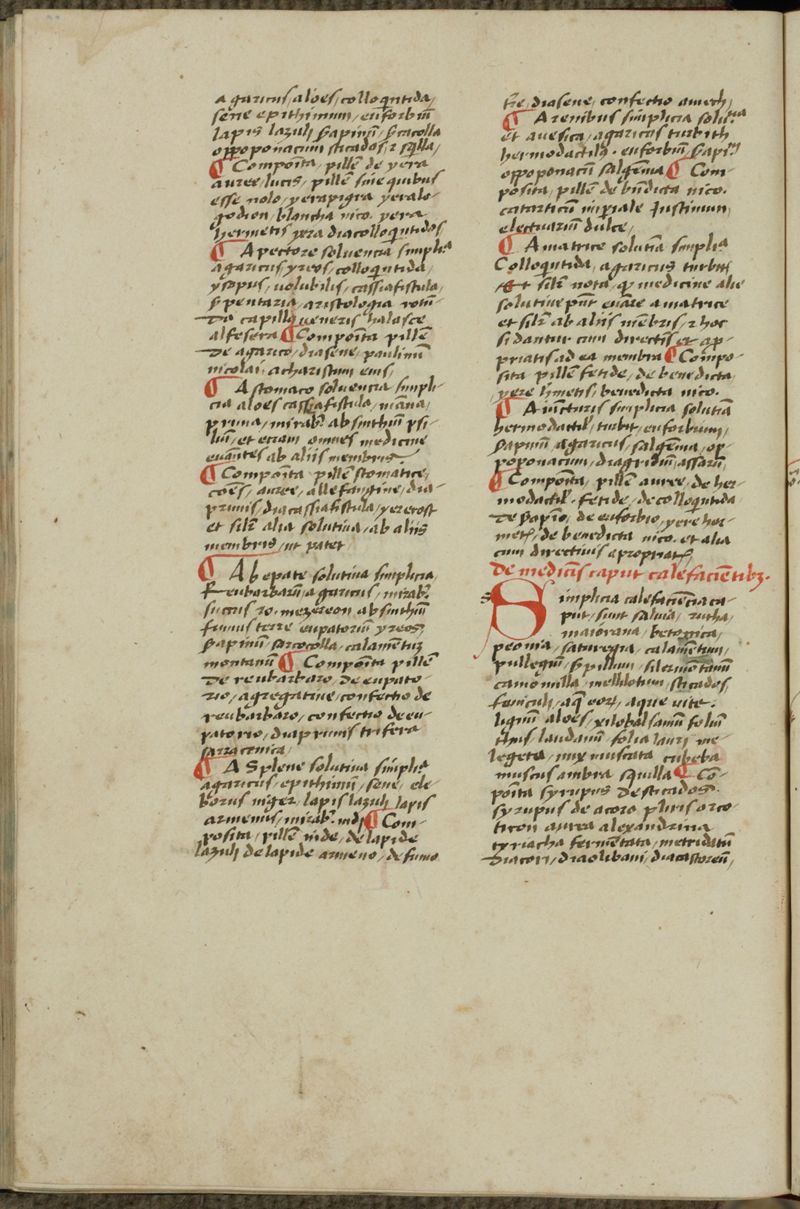 agaricus, aloes, colloqntida,
sene epithimum, euforbiū
lapis lazulj Sapinū, Sercolla
oppoponacum sticados ꝛ sqlla,
¶ Compoīta, pillē de yera
auree, lucis, pillē sine quibus
esse nolo, yerapigra yeralo-
godion, blancha nico. yera
hermetis yera diacolloquitidos
¶ A pectore soluencia simplia
agaricus, yreos, colloqntida,
ysopus, uolubilis, cassiafistula,
Spentaria, aristologia rotū-
da capillꝯ ueneris, halasce
alfesera ¶ Compoīta pillē
de agarico, diasene, paulinū
nicolai, acharistum eius,
¶ A stomaco soluencia simpli-
cia aloes cassiafistula, māna,
pruna, mirab. absinthiū psi-
liū, et etiam omnes medicine
euāntes ab aliis membris.
¶ Compoīta pillē stomatice,
coēs, auree, alle fangine, dia-
prunis, diacassiafistula, yererost
et silr alia solutiua, ab aliis
membris, ut patet
¶ Ab epate solutiua simplicia,
Reubarbarū, agaricus, mirab.
succus ro. mezereon absinthiū
fumus terre eupatoriū yreos,
Sapinū sarcocolla, calamētuʒ
montanū ¶ Compoīta pillē
de reubarbaro, de eupato-
rio, agregatiue, confectio de
reubarbaro, confectio de eu-
patorio, diaprunis trifera
sarracenica,
¶ A Splene solutiua simplia
agaricus, epithimū, sene, ele-
borus niger, lapis lazulj lapis
armenus, mirab. indi ¶ Com-
posita, pillē inde, de lapide
lazulj de lapide armeno, de fumo
tr̄e, diasene, confectio amech,
¶ A renibus simplicia soluta
et a uesica, agaricus turbith
hermodactilꝯ. euforbiū Sapi
oppoponacū salgēma ¶ Com-
posita, pillē de bn̄dicta nico.
catarticū inpiale Justinum,
electuariū dulce,
¶ A matrice solutia simplia
Colloquitida, agaricus turbit
et silr nota, qꝫ medicine alie
solutiue pn̄t euare a matrice
et silr ab aliis mēbris, ꝛ hoc
si dantur cum directis et ap-
priatis ad ea membra ¶ Compo-
sita pillē fetide, de benedicta,
yere hmetis, benedicta nico.
¶ A iūcturis simplicia solutiā
hermodactil, turbit, euforbium,
Sapinū, agaricus, salgēma, op-
poponacum, diagridiū, assarū,
¶ Compoīta, pillē auree, de her-
modactil. fetide, de colloquitida
de Sapīo, de euforbio, yere her-
met, de benedicta nico. et alia
cum directiuis apropriat
De medicīs caput calefaciētibꝫ.
Simplicia calefaciēcia ca-
put, sunt saluia, rutha,
maiorana, betonica,
peonia, saturegia calamētum,
pullegiū, Spillum, silermōtanū
camomilla, mellilotum, sticados,
funiculj, aq eoꝝ, aque uite.
lignū aloes, xilobalsamū foliū
thus laudanū folia lauri me-
legeta, nux muscata cubeba
muscus ambra squilla ¶ Cō-
poīta syrupus de sticados.
syrupus de acoro pluris arco-
ticon aurea alexandrina
tyriacha fermētata, metridatū
diacori, diaolibani, diacastoreū,